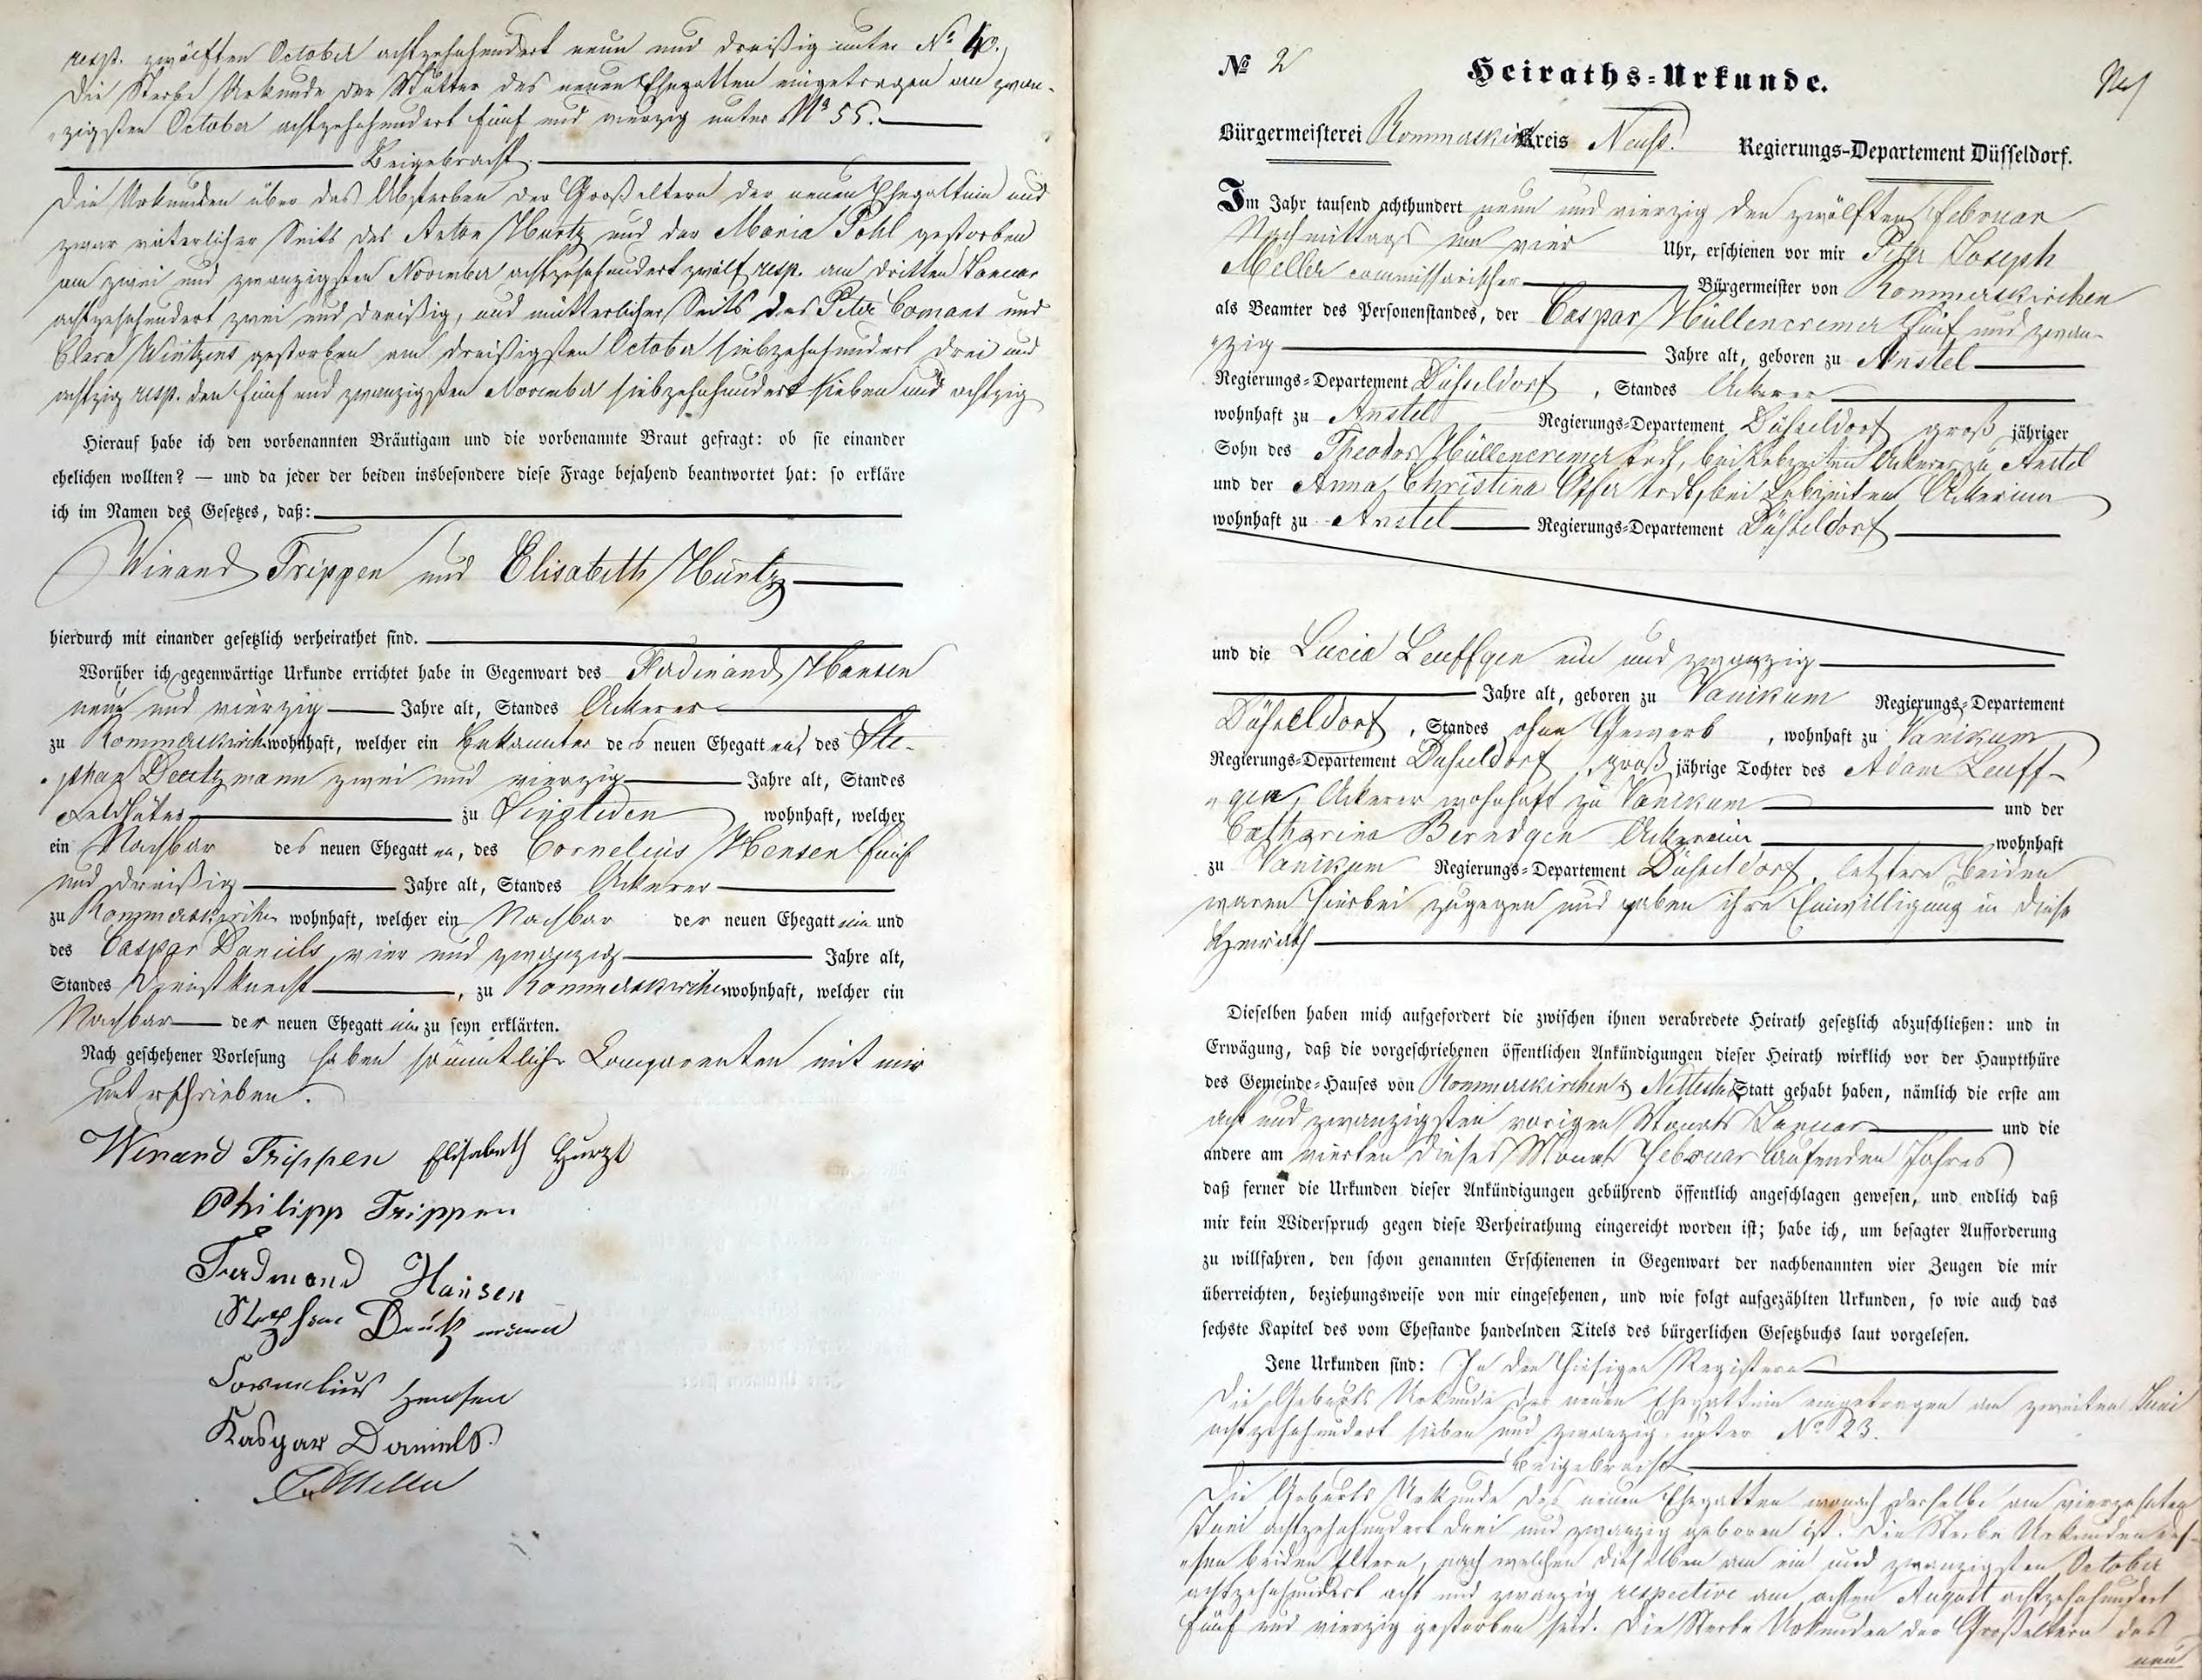 resp. zwölften October achtzehnhundert neun und dreißig unter N° 40.,
Die Sterbe Urkunde der Mutter des neuen Ehegatten eingetragen am zwan-
zigsten October achtzehnhundert fünf und vierzig unter N° 55.
Beigebracht.
Die Urkunden über das Absterben der Großeltern der neuen Ehegattin und
zwar väterlicher Seits des Anton Hürtz und der Maria Pohl gestorben
am zwei und zwanzigsten November achtzehnhundert zwölf resp. am dritten Januar
achtzehnhundert zwei und dreißig, und mütterlicher Seits des Peter Comans und
Clara Wintzens gestorben am dreißigsten October siebzehnhundert drei und
achtzig resp. den fünf und zwanzigsten November siebzehnhundert sieben und achtzig
Hierauf habe ich den vorbenannten Bräutigam und die vorbenannte Braut gefragt: ob sie einander
ehelichen wollten? — und da jeder der beiden insbesondere diese Frage bejahend beantwortet hat: so erkläre
ich im Namen des Gesetzes, daß:
Winand Trippen und Elisabeth Hürtz
hierdurch mit einander gesetzlich verheirathet sind.
Worüber ich gegenwärtige Urkunde errichtet habe in Gegenwart des Ferdinand Hansen
neun und vierzig Jahre alt, Standes Ackerer
zu Rommerskirchen wohnhaft, welcher ein Bekannter des neuen Ehegatten, des Ste-
phan Deutzmann zwei und vierzig Jahre alt, Standes
Feldhüter zu Sinsteden wohnhaft, welcher
ein Nachbar des neuen Ehegatten, des Cornelius Hensen fünf
und dreißig Jahre alt, Standes Ackerer
zu Rommerskirchen wohnhaft, welcher ein Nachbar der neuen Ehegattin und
des Caspar Daniels vier und zwanzig Jahre alt,
Standes Dienstknecht, zu Rommerskirchen wohnhaft, welcher ein
Nachbar der neuen Ehegattin zu seyn erklärten.
Nach geschehener Vorlesung haben sämmtliche Comparenten mit mir
unterschrieben.
Winand Trippen Elisabeth Hürzt
Philipp Trippen
Ferdinand Hansen
Stephan Deutzmann
Cornelius Hensen
Kaspar Daniels
Meller
N° 2
Heiraths-Urkunde.
Bürgermeisterei Rommerskirchen Kreis Neuß. Regierungs-Departement Düsseldorf.
Im Jahr tausend achthundert neun und vierzig den zwölften Februar
Nachmittags um vier Uhr, erschienen vor mir Peter Joseph
Meller commissarischer Bürgermeister von Rommerskirchen
als Beamter des Personenstandes, der Caspar Hüllencremer fünf und zwan-
zig Jahre alt, geboren zu Anstel
Regierungs-Departement Düsseldorf, Standes Ackerer
wohnhaft zu Anstel Regierungs-Departement Düsseldorf groß jähriger
Sohn des Theodor Hüllencremer todt, bei Lebzeiten Ackerer zu Anstel
und der Anna Christina Offer todt, bei Lebzeiten Ackerinn
wohnhaft zu Anstel Regierungs-Departement Düsseldorf
und die Lucia Leuffgen ein und zwanzig
Jahre alt, geboren zu Vanikum Regierungs-Departement
Düsseldorf, Standes ohne Gewerb, wohnhaft zu Vanikum
Regierungs-Departement Düsseldorf, groß jährige Tochter des Adam Leuff-
gen, Ackerer wohnhaft zu Vanikum und der
Catharina Berndgen Ackerin wohnhaft
zu Vanikum Regierungs-Departement Düsseldorf, letztere beiden
waren hierbei zugegen und gaben ihre Einwilligung in diese
Heirath
Dieselben haben mich aufgefordert die zwischen ihnen verabredete Heirath gesetzlich abzuschließen: und in
Erwägung, daß die vorgeschriebenen öffentlichen Ankündigungen dieser Heirath wirklich vor der Hauptthüre
des Gemeinde-Hauses von Rommerskirchen & Nettesheim Statt gehabt haben, nämlich die erste am
acht und zwanzigsten vorigen Monats Januar und die
andere am vierten dieses Monats Februar laufenden Jahres
daß ferner die Urkunden dieser Ankündigungen gebührend öffentlich angeschlagen gewesen, und endlich daß
mir kein Widerspruch gegen diese Verheirathung eingereicht worden ist; habe ich, um besagter Aufforderung
zu willfahren, den schon genannten Erschienenen in Gegenwart der nachbenannten vier Zeugen die mir
überreichten, beziehungsweise von mir eingesehenen, und wie folgt aufgezählten Urkunden, so wie auch das
sechste Kapitel des vom Ehestande handelnden Titels des bürgerlichen Gesetzbuchs laut vorgelesen.
Jene Urkunden sind: In den hiesigen Registern
Die Geburts Urkunde der neuen Ehegattin eingetragen am zweiten Juni
achtzehnhundert sieben und zwanzig unter N° 23.
Beigebracht
Die Geburts Urkunde des neuen Ehegatten wonach derselbe am vierzehnten
Juni achtzehnhundert drei und zwanzig geboren ist. Die Sterbe Urkunden des-
sen beiden Eltern, nach welchen dieselben am ein und zwanzigsten October
achtzehnhundert acht und zwanzig respective am achten August achtzehnhundert
fünf und vierzig gestorben sind. Die Sterbe Urkunden der Großeltern des
neu